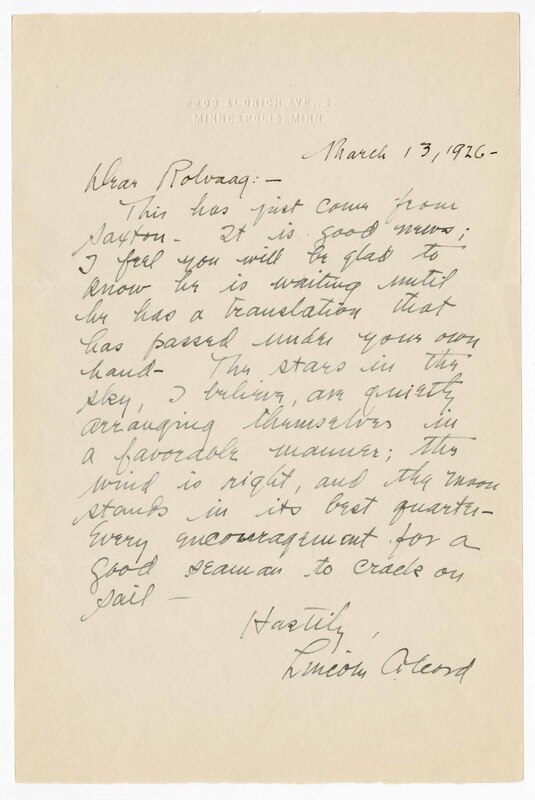 2203 ALDRICH AVE., S
MINNEAPOLIS, MINN
March 13, 1926-
Dear Rolvaag:-
This has just come from
Saxton- It is good news;
I feel you will be glad to
know he is waiting until
he has a translation that
has passed under your own
hand- The stars in the
sky, I believe, are quietly
arranging themselves in
a favorable manner; the
wind is right, and the moon
stands in its best quarter-
Every encouragement for a
good seaman to crack on
sail -
Hastily,
Lincoln Colcord